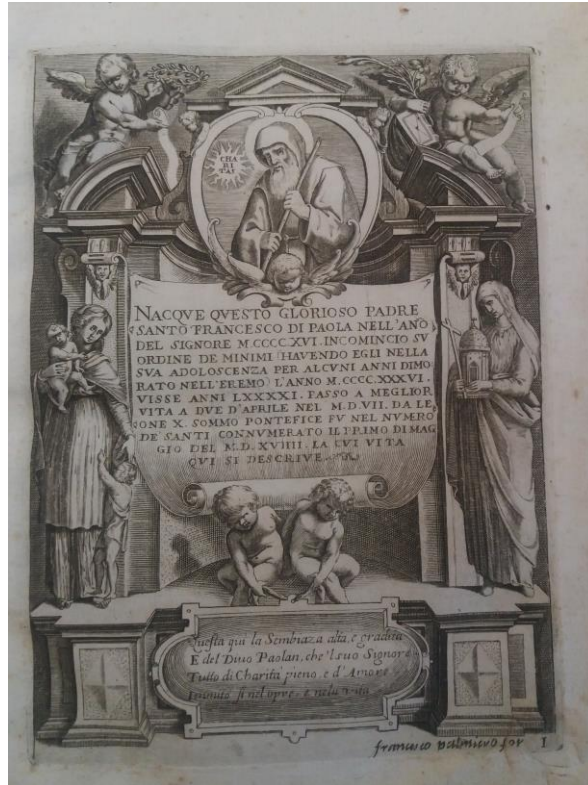 CHA
RI
TAS
NACQVE QVESTO GLORIOSO PADRE
SANTO FRANCESCO DI PAOLA NELL'ANO
DEL SIGNORE M.CCCC.XVI. INCOMINCIO SV
ORDINE DE MINIMI (HAVENDO EGLI NELLA
SVA ADOLOSCENZA PER ALCVNI ANNI DIMO
RATO NELL'EREMO) L'ANNO M.CCCC.XXXVI.
VISSE ANNI LXXXXI. PASSO A MEGLIOR
VITA A DVE D'APRILE NEL M.D.VII. DA LE
ONE X. SOMMO PONTEFICE FV NEL NVMERO
DE' SANTI CONNVMERATO IL PRIMO DI MAG
GIO DEL M.D.XVIIII. LA CVI VITA
QVI SI DESCRIVE
Questa qui la Sembiaza alta, e gradita
E del Diuo Paolan, che 'l suo Signore
Tutto di Charità pieno, e d'Amore
Immitò si nel opre, e nela Vita
francesco palmiero for 1